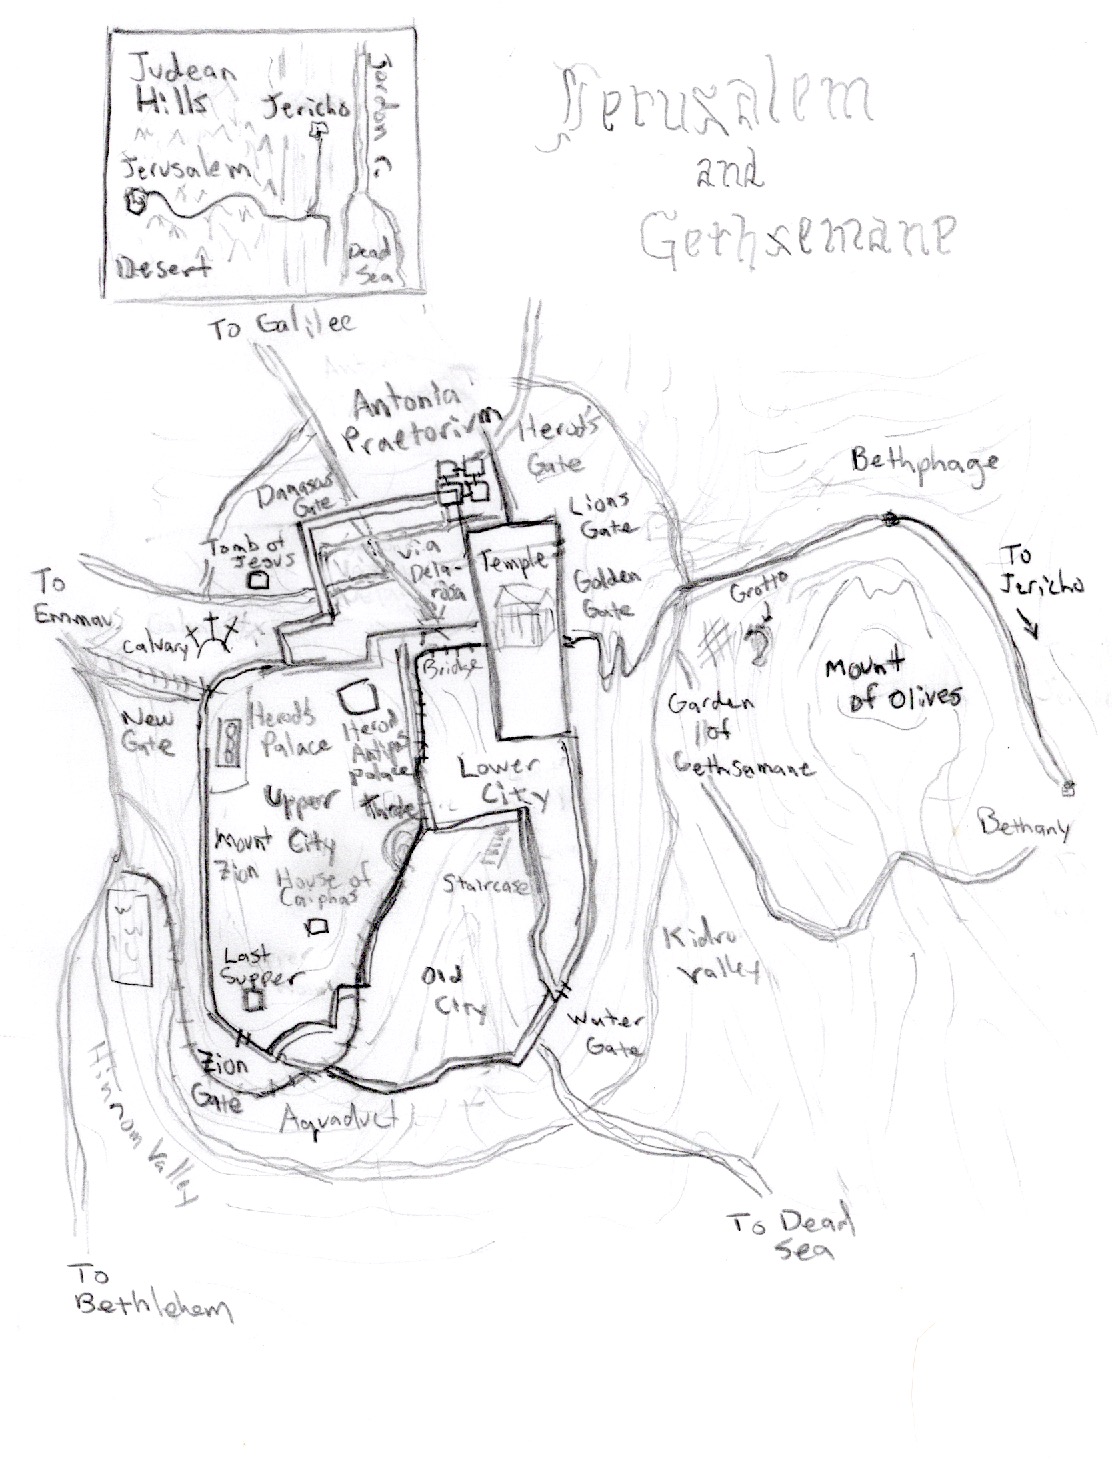 Judean
Hills
Jericho
Jordan R.
Jerusalem
Desert
Dead
Sea
Jerusalem
and
Gethsemane
To Galilee
Antonia
Praetorium
Herod's
Gate
Damasus
Gate
Lions
Gate
Bethphage
Tomb of
Jesus
Via
Dela-
rosa
Temple
Golden
Gate
Grotto
To
Jericho
To
Emmaus
Calvary
Bridge
Mount
of Olives
New
Gate
Herod's
Palace
Herod
Antipas
Palace
Garden
of
Gethsamane
Lower
City
Upper
City
Mount
Zion
House of
Caiphas
Staircase
Bethany
Last
Supper
Old
City
Kidru
Valley
Water
Gate
Zion
Gate
Aquaduct
Hinnom Valley
To Dead
Sea
To
Bethlehem